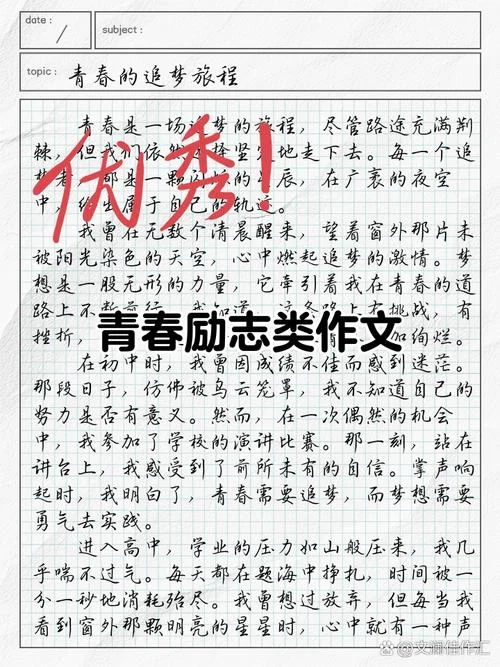 date:
subject:
topic: 青春的追梦旅程
青春是一场追梦的旅程，尽管路途充满荆
棘，但我们依然选择坚定地走下去。每一个追
梦者，都是一颗闪烁的星辰，在广袤的夜空
中，绘出属于自己的轨迹。
优秀！
我曾在无数个清晨醒来，望着窗外那片未
被阳光染色的天空，心中燃起追梦的激情。梦
想是一股无形的力量，它牵引着我在青春的道
路上不断前行。我知道，这条路上有挑战，有
挫折，
加绚烂。
青春励志类作文
在初中时，我曾因成绩不佳而感到迷茫。
那段日子，仿佛被乌云笼罩，我不知道自己的
努力是否有意义。然而，在一次偶然的机会
中，我参加了学校的演讲比赛。那一刻，站在
讲台上，我感受到了前所未有的自信。掌声响
起时，我明白了，青春需要追梦，而梦想需要
勇气去实践。
进入高中，学业的压力如山般压来，我几
乎喘不过气。每天都在题海中挣扎，时间被一
分一秒地消耗殆尽。我曾想过放弃，但每当我
看到窗外那颗明亮的星星时，心中就有一种声
@文澜佳作汇